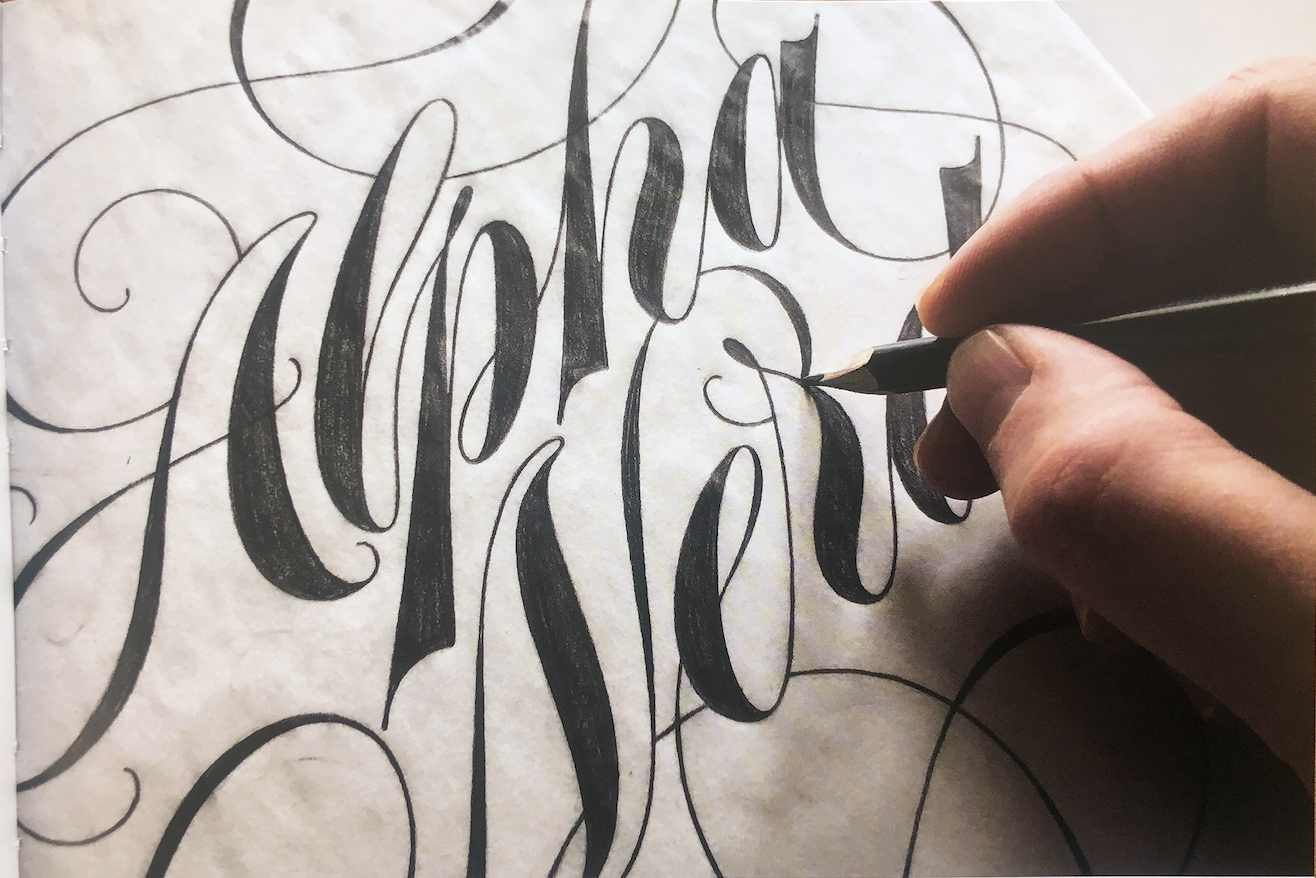 Alpha
Nerd